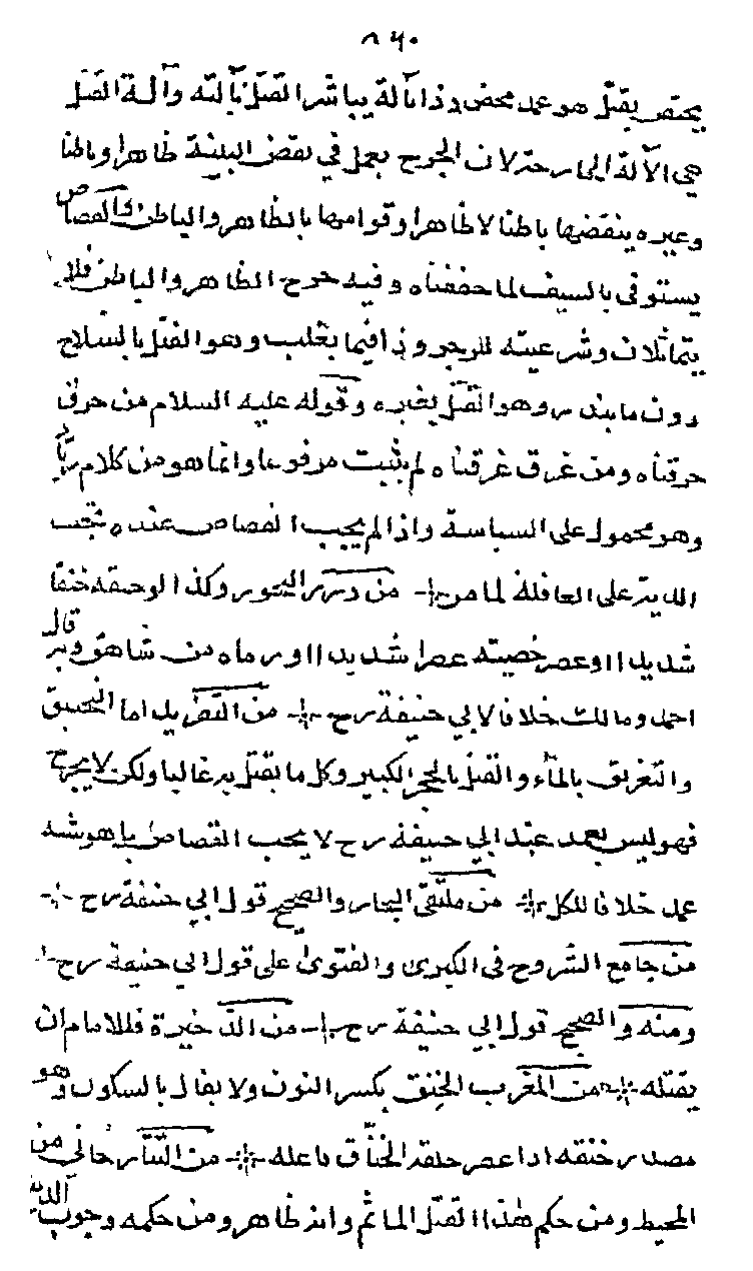 ٨٦٠
يحتقر بقتل هو عمد محض وذا بآلة يباشر القتل بآلته وآلة القتل
هي الآلة الجارحة لان الجرح يعمل في نقض البنية ظاهرا وباطنا
وغيره ينقضها باطنا لا ظاهرا وقوامها بالظاهر والباطن والقصاص
يستوفى بالسيف لما حققناه وفيه جرح الظاهر والباطن فلا
يتماثلان وشرعيته للزجر وذا فيما يغلب وهو القتل بالسلاح
دون ما يندر وهو القتل بغيره وقوله عليه السلام من حرق
حرقناه ومن غرق غرقناه لم يثبت مرفوعا وانما هو من كلام زياد
وهو محمول على السياسة واذا لم يجب القصاص عنده تجب
الدية على العاقلة لما مر من درر البحور وكذا لو خنقه خنقا
شديدا او عصر خصيته عصرا شديدا او رماه من شاهق وبه قال
احمد ومالك خلافا لابي حنيفة رح من التفريد اما التخنيق
والتغريق بالماء والقتل بالحجر الكبير وكل ما يقتل به غالبا ولكن لا يجرح
فهو ليس بعمد عند ابي حنيفة رح لا يجب القصاص بل هو شبه
عمد خلافا للكل من ملتقى البحار والصحيح قول ابي حنيفة رح
من جامع الشروح في الكبرى والفتوى على قول ابي حنيفة رح
ومنه والصحيح قول ابي حنيفة رح من الذخيرة فللامام ان
يقتله من المغرب الخنق بكسر النون ولا يقال بالسكون وهو
مصدر خنقه اذا عصر حلقه الخناق فاعله من التتارخاني من
المحيط ومن حكم هذا القتل المأثم وانه ظاهر ومن حكمه وجوب الدية